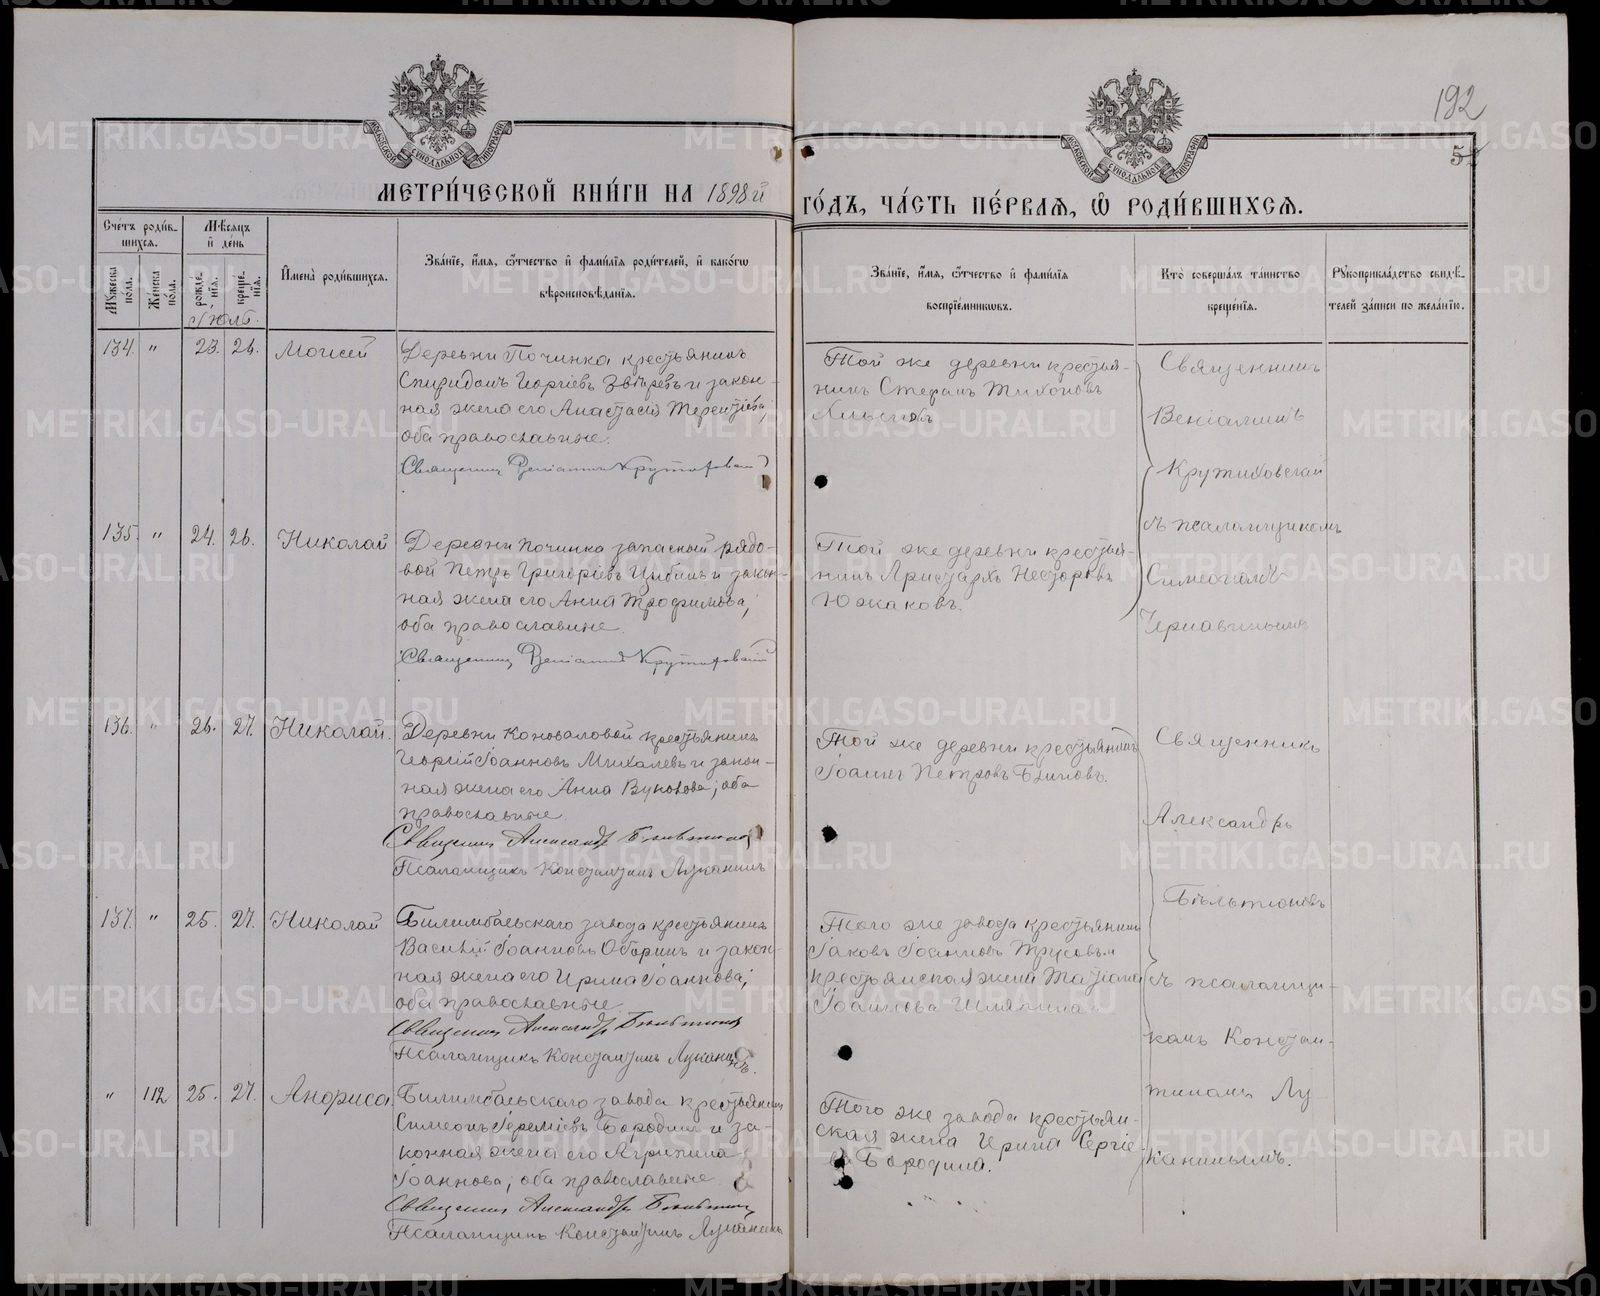 192
5
МОСКОВСКОЙ СѴНОДАЛЬНОЙ ТИПОГРАФІИ
МОСКОВСКОЙ СѴНОДАЛЬНОЙ ТИПОГРАФІИ
МЕТРИ́ЧЕСКОЙ КНИ́ГИ НА 1898й
ГО́ДЪ, ЧА́СТЬ ПЕ́РВАЯ, Ѽ РОДИ́ВШИХСЯ.
Сче́тъ роди́в-
шихся.
Мѣсяцъ
и҆ де́нь
Мꙋжеска по́ла.
Же́нска по́ла.
рожде́-
нїѧ.
креще́-
нїѧ.
Іюль.
И҆мена̀ роди́вшихся.
Зва́нїе, и҆́мѧ, ѻ҆́тчество и҆ фами́лїѧ роди́телей, и҆ како́гѡ
вѣроисповѣ́данїѧ.
Зва́нїе, и҆́мѧ, ѻ҆́тчество и҆ фами́лїѧ
воспрїе́мникѡвъ.
Кто̀ соверша́лъ та́инство
креще́нїѧ.
Рꙋкоприкла́дство свидѣ́-
телей за́писи по жела́нїю.
134. " 23. 26. Моисей
Деревни Починка крестьянинъ
Спиридонъ Георгіевъ Звѣревъ и закон-
ная жена его Анастасія Терентіева;
оба православные.
Священникъ Веніаминъ Крутиховскій
Той же деревни крестья-
нинъ Стефанъ Тихоновъ
Священникъ
Веніаминъ
Крутиховскій
съ псаломщикомъ
Симеономъ
Чернавинымъ
135. " 24. 26. Николай
Деревни Починка запасный рядо-
вой Петръ Григоріевъ Цыбинъ и закон-
ная жена его Анна Трофимова;
оба православные.
Священникъ Веніаминъ Крутиховскій
Той же деревни крестья-
нинъ Аристархъ Несторовъ
Южаковъ.
136. " 26. 27. Николай.
Деревни Коноваловой крестьянинъ
Георгій Іоанновъ Михалевъ и закон-
ная жена его Анна Вуколова; оба
православные.
Священникъ Александръ Бѣльтюковъ
Псаломщикъ Константинъ Луканинъ
Той же деревни крестьянинъ
Іоаннъ Петровъ Блиновъ.
Священникъ
Александръ
Бѣльтюковъ
съ псаломщи-
комъ Констан-
тиномъ Лу-
канинымъ.
137. " 25. 27. Николай
Билимбаевскаго завода крестьянинъ
Василій Іоанновъ Оборинъ и закон-
ная жена его Ирина Іоаннова;
оба православные
Священникъ Александръ Бѣльтюковъ
Псаломщикъ Константинъ Луканинъ.
Того же завода крестьянинъ
Іаковъ Іоанновъ Трусовъ и
крестьянская жена Татіана
Іоаннова Шляпина.
" 112 25. 27. Анфиса
Билимбаевскаго завода крестьянинъ
Симеонъ Іереміевъ Бородинъ и за-
конная жена его Агрипина
Іоаннова; оба православные.
Священникъ Александръ Бѣльтюковъ
Псаломщикъ Константинъ Луканинъ
Того же завода крестьян-
ская жена Ирина Сергіе-
ва Бородина.
METRIKI.GASO-URAL.RU